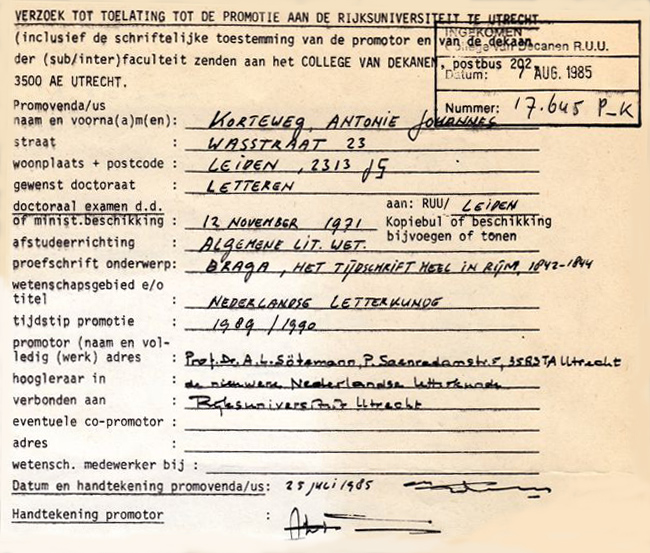 VERZOEK TOT TOELATING TOT DE PROMOTIE AAN DE RIJKSUNIVERSITEIT TE UTRECHT
(inclusief de schriftelijke toestemming van de promotor en van de dekaan
der (sub/inter)faculteit zenden aan het COLLEGE VAN DEKANEN, postbus 202,
3500 AE UTRECHT.
INGEKOMEN
College van Decanen R.U.U.
Datum: 7 AUG. 1985
Nummer: 17.645 P_K
Promovenda/us
naam en voorna(a)m(en): KORTEWEG, ANTONIE JOHANNES
straat : WASSTRAAT 23
woonplaats + postcode : LEIDEN, 2313 JG
gewenst doctoraat : LETTEREN
doctoraal examen d.d. aan: RUU/ LEIDEN
of minist.beschikking : 12 NOVEMBER 1971 Kopiebul of beschikking
bijvoegen of tonen
afstudeerrichting : ALGEMENE LIT. WET.
proefschrift onderwerp: BRAGA, HET TIJDSCHRIFT HEEL IN RIJM, 1842-1844
wetenschapsgebied e/o
titel : NEDERLANDSE LETTERKUNDE
tijdstip promotie : 1989/1990
promotor (naam en vol-
ledig (werk) adres : Prof. Dr. A.L. Sötemann, P. Saenredamstr. 5, 3583TA Utrecht
hoogleraar in : de nieuwere Nederlandse letterkunde
verbonden aan : Rijksuniversiteit Utrecht
eventuele co-promotor :
adres :
wetensch. medewerker bij :
Datum en handtekening promovenda/us: 25 juli 1985
Handtekening promotor :